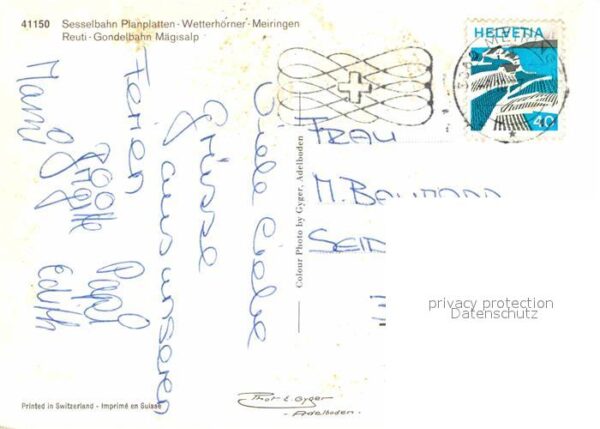 41150 Sesselbahn Planplatten · Wetterhörner · Meiringen
Reuti · Gondelbahn Mägisalp
HELVETIA
40
Viele liebe
Grüsse
aus unseren
Ferien
Papi
Edith
Colour Photo by Gyger, Adelboden
FRAU
M. BAUMANN
privacy protection
Datenschutz
Printed in Switzerland - Imprimé en Suisse
Phot. E. Gyger
Adelboden.